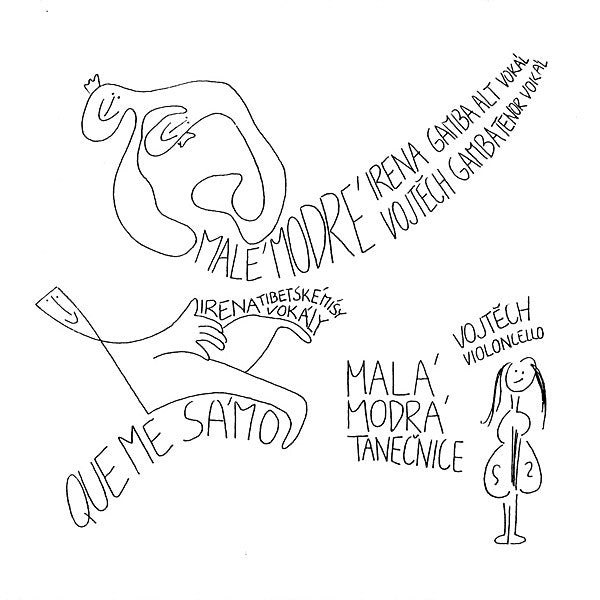 MALÉ MODRÉ
IRENA GAMBA ALT VOKÁL
VOJTĚCH GAMBA TENOR VOKÁL
IRENA TIBETSKÉ MÍSY
VOKÁLY
QUE ME SÁMO
VOJTĚCH
VIOLONCELLO
MALÁ
MODRÁ
TANEČNICE